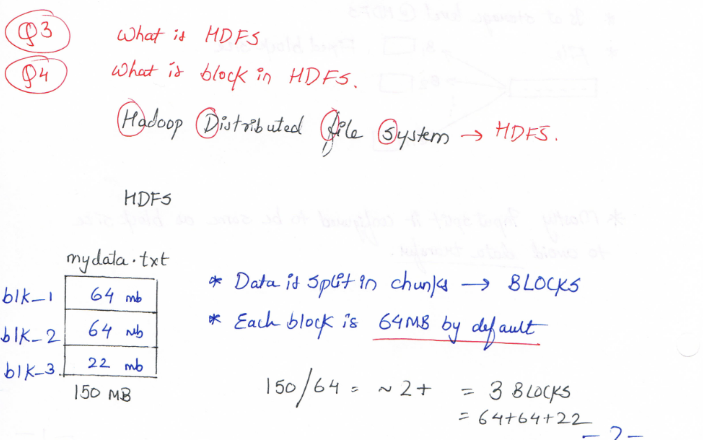 Q3 What is HDFS
Q4 What is block in HDFS.
Hadoop Distributed File System → HDFS.
HDFS
mydata.txt
blk_1 64 mb
blk_2 64 mb
blk_3. 22 mb
150 MB
* Data is split in chunks → BLOCKS
* Each block is 64MB by default
150/64 = ~2+ = 3 BLOCKS
= 64+64+22
-2-